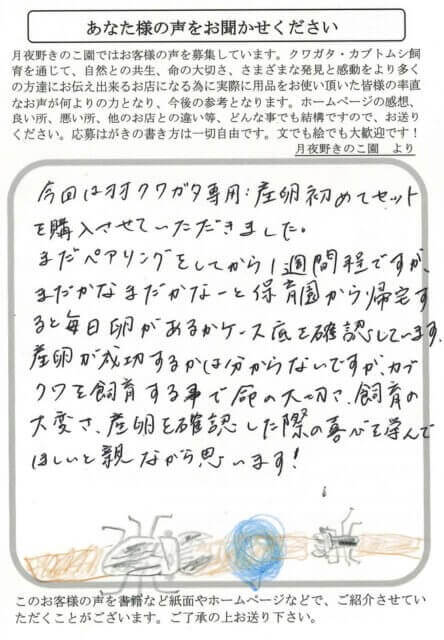 あなた様の声をお聞かせください
月夜野きのこ園ではお客様の声を募集しています。クワガタ・カブトムシ飼
育を通じて、自然との共生、命の大切さ、さまざまな発見と感動をより多く
の方達にお伝え出来るお店になる為に実際に用品をお使い頂いた皆様の率直
なお声が何よりの力となり、今後の参考となります。ホームページの感想、
良い所、悪い所、他のお店との違い等、どんな事でも結構ですので、お送り
ください。応募はがきの書き方は一切自由です。文でも絵でも大歓迎です！
月夜野きのこ園　より
今回はオオクワガタ専用:産卵初めてセット
を購入させていただきました。
まだペアリングをしてから1週間程ですが、
まだかなまだかなーと保育園から帰宅す
ると毎日卵があるかケース底を確認しています。
産卵が成功するかは分からないですが、カブ
クワを飼育する事で命の大切さ、飼育の
大変さ、産卵を確認した際の喜びを学んで
ほしいと親ながら思います！
このお客様の声を書籍など紙面やホームページなどで、ご紹介させてい
ただくことがございます。ご了承の上お送り下さい。